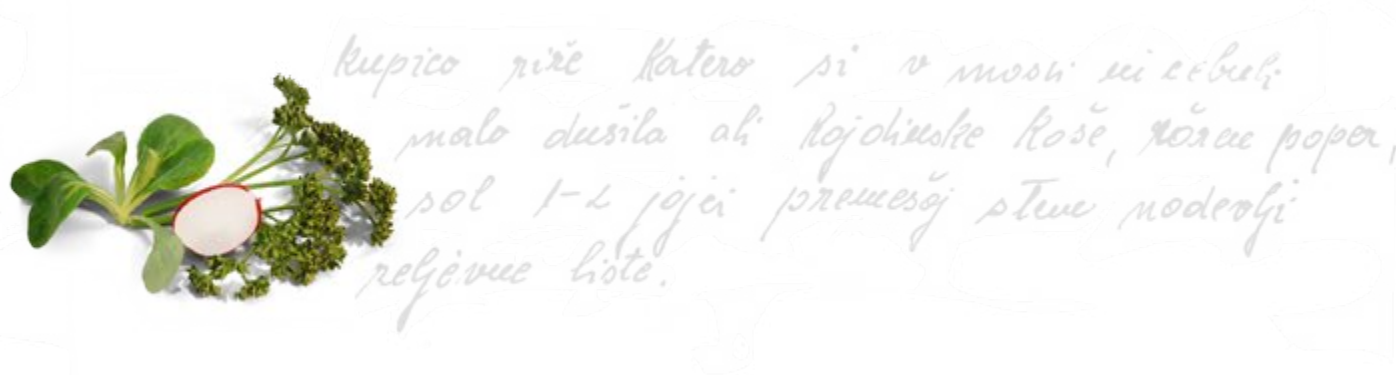 kupico riže katero si v masti in čebuli
malo dušila ali kojdinske kaše, rözne poper,
sol 1-2 jajci premešaj s tem nadevlji
zeljevne liste.